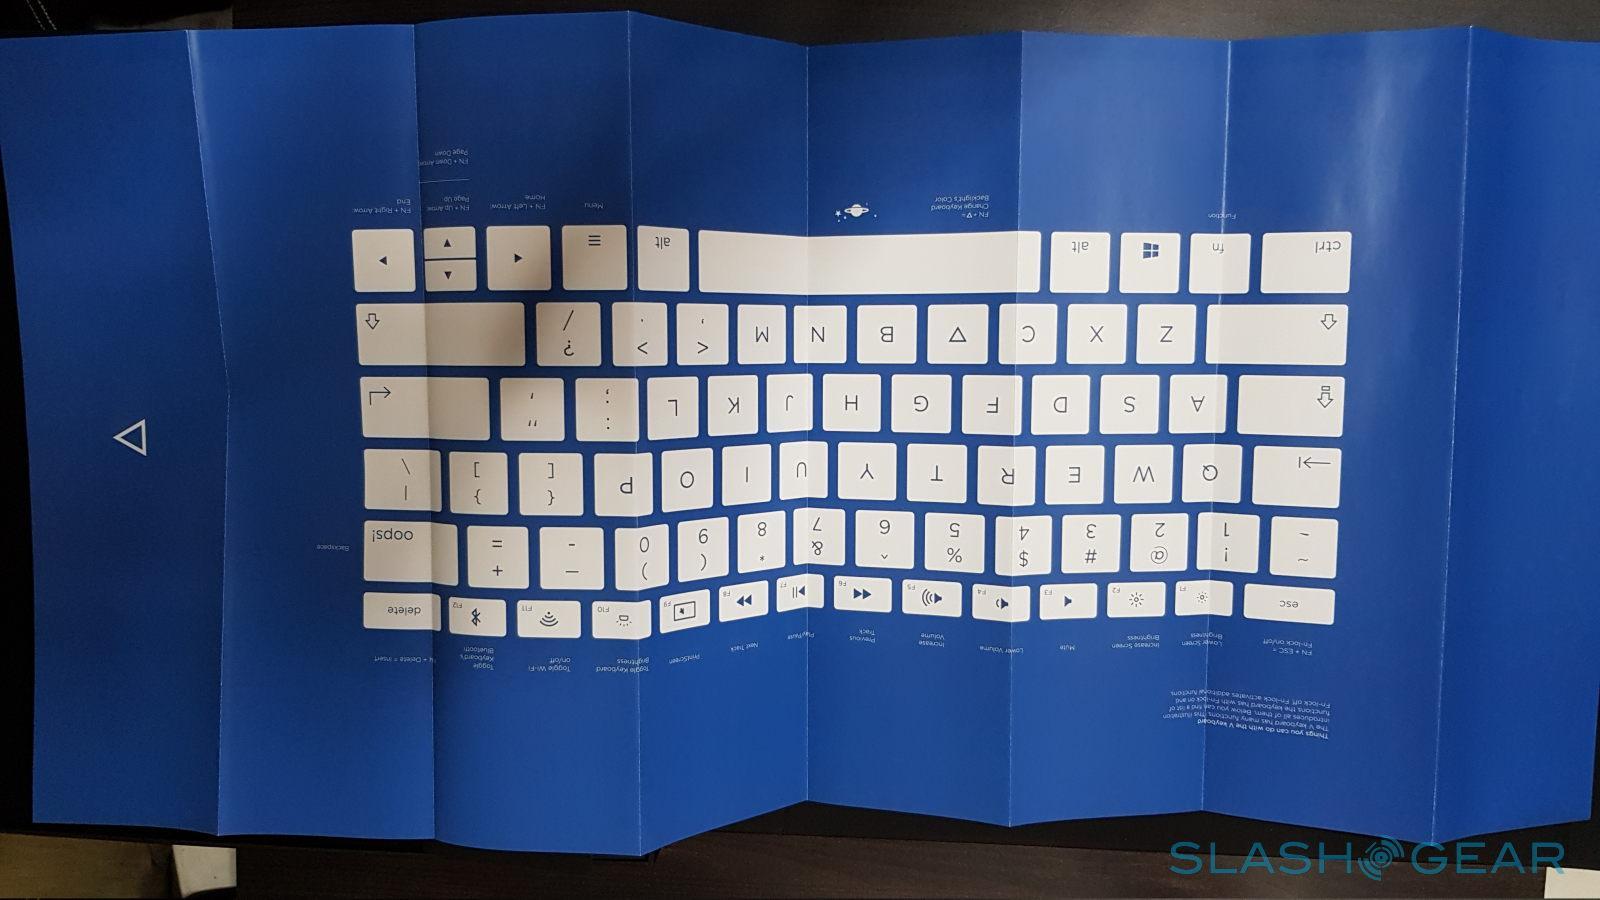 Things you can do with the V keyboard
The V keyboard has many functions. This illustration
introduces all of them. Below you can find a list of
functions the keyboard has with Fn-lock on and
Fn-lock off. Fn-lock activates additional functions.
FN + ESC =
Fn-lock on/off
Lower Screen
Brightness
Increase Screen
Brightness
Mute
Lower Volume
Increase
Volume
Previous
Track
Play/Pause
Next Track
PrintScreen
Toggle Keyboard
Brightness
Toggle Wi-Fi
on/off
Toggle
Keyboard's
Bluetooth
+ Delete = Insert
esc F1 F2 F3 F4 F5 F6 F7 F8 F9 F10 F11 F12 delete
~ ! @ # $ % ^ & * ( ) _ +
` 1 2 3 4 5 6 7 8 9 0 - = oops!
Backspace
Q W E R T Y U I O P { [ } ] | \
A S D F G H J K L : ; " '
Z X C B N M < , > . ? /
ctrl fn alt alt
Function
FN + =
Change Keyboard
Backlight's Color
Menu
FN + Left Arrow:
Home
FN + Up Arrow:
Page Up
FN + Down Arrow:
Page Down
FN + Right Arrow:
End
SLASHGEAR